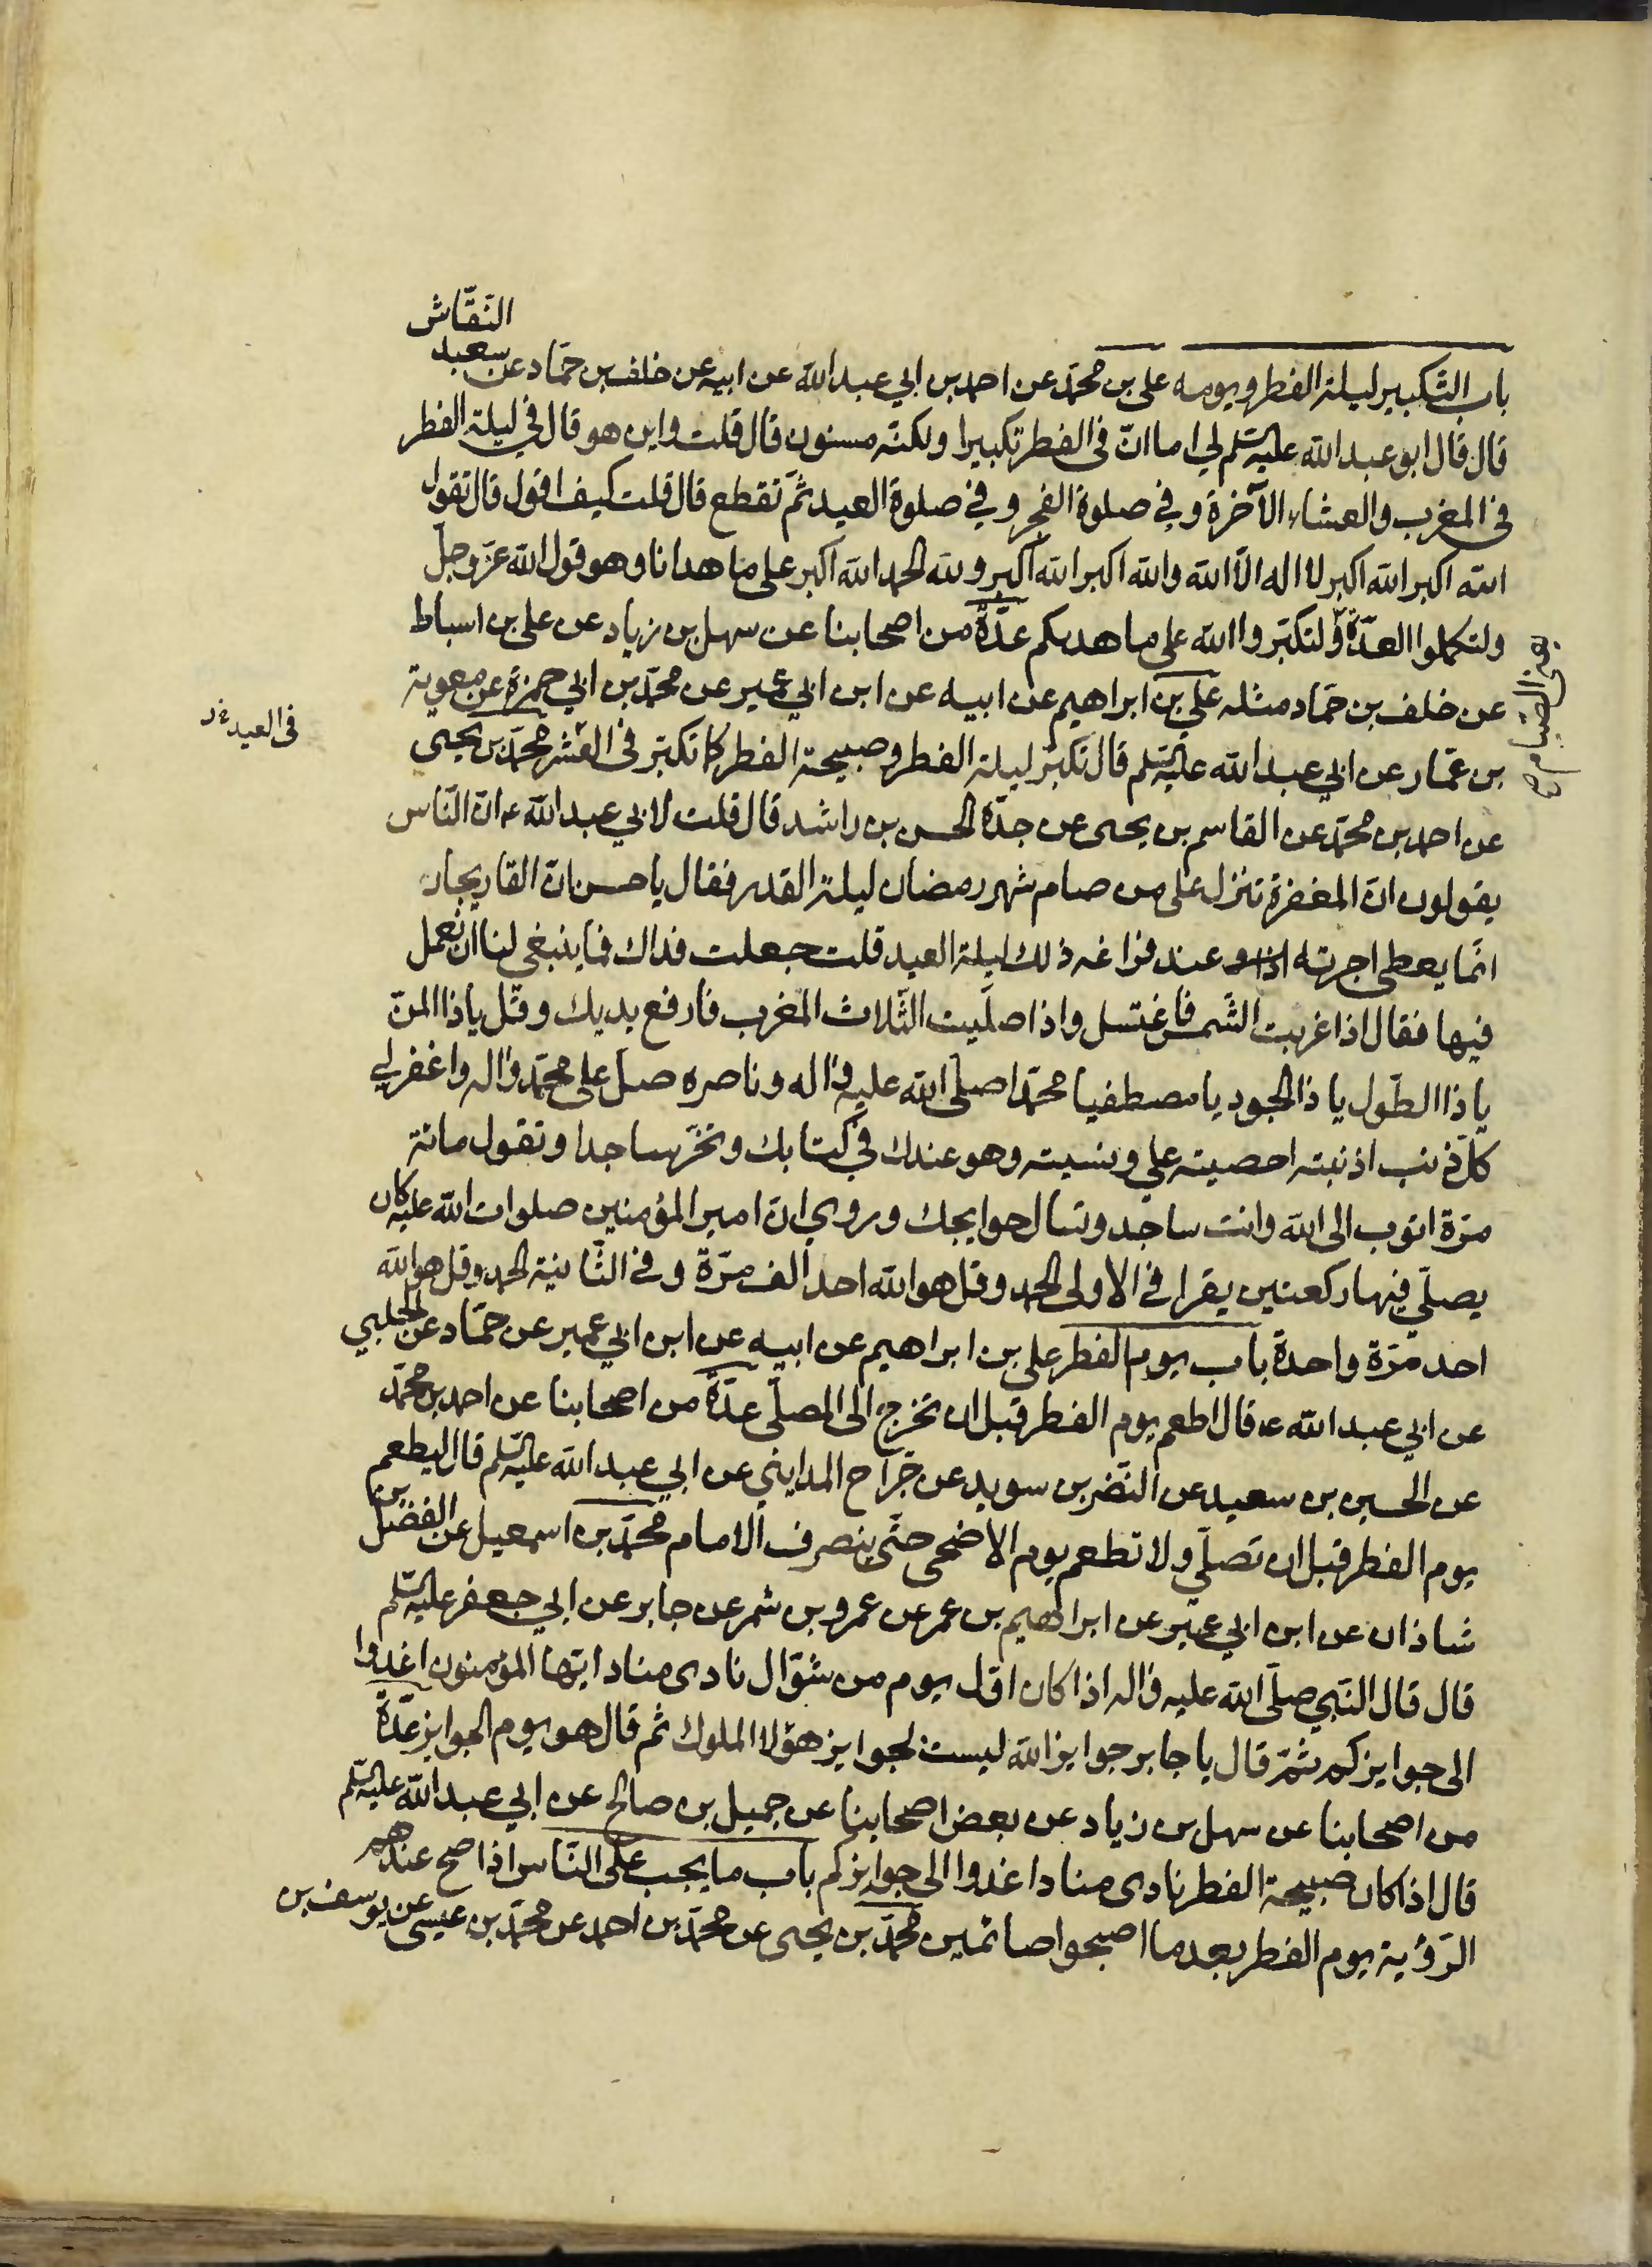 النقّاش
باب التّكبير ليلة الفطر ويومه علي بن محمّد عن احمد بن ابي عبد الله عن ابيه عن خلف بن حمّاد عن سعيد
قال قال ابو عبد الله عليه السّلم لي اما انّ في الفطر تكبيرا ولكنّه مسنون قال قلت واين هو قال في ليلة الفطر
في المغرب والعشاء الآخرة وفي صلوة الفجر وفي صلوة العيد ثمّ تقطع قال قلت كيف اقول قال تقول
الله اكبر الله اكبر لا اله الّا الله والله اكبر الله اكبر ولله الحمد الله اكبر على ما هدانا وهو قول الله عزّ وجلّ
ولتكملوا العدّة ولتكبّروا الله على ما هديكم عدّة من اصحابنا عن سهل بن زياد عن علي بن اسباط
يعني الصّيام ص
عن خلف بن حمّاد مثله علي بن ابراهيم عن ابيه عن ابن ابي عمير عن محمّد بن ابي حمزة عن معوية
في العيد
بن عمّار عن ابي عبد الله عليه السّلم قال تكبّر ليلة الفطر وصبيحة الفطر كما تكبّر في العشر محمّد بن يحيى
عن احمد بن محمّد عن القاسم بن يحيى عن جدّه الحسن بن راشد قال قلت لابي عبد الله ع انّ النّاس
يقولون انّ المغفرة تنزل على من صام شهر رمضان ليلة القدر فقال يا حسن انّ القاريجان
انّما يعطى اجرته عند فراغه ذلك ليلة العيد قلت جعلت فداك فما ينبغي لنا ان نعمل
فيها فقال اذا غربت الشّمس فاغتسل واذا صلّيت الثّلاث المغرب فارفع يديك وقل يا ذا المنّ
يا ذا الطّول يا ذا الجود يا مصطفيا محمّدا صلى الله عليه واله وناصره صلّ على محمّد واله واغفر لي
كلّ ذنب اذنبته احصيته علي ونسيته وهو عندك في كتابك وتخرّ ساجدا وتقول مائة
مرّة اتوب الى الله وانت ساجد وتسال حوايجك وروي انّ امير المؤمنين صلوات الله عليه كان
يصلّي فيها ركعتين يقرا في الاولى الحمد وقل هو الله احد الف مرّة وفي الثّانية الحمد وقل هو الله
احد مرّة واحدة باب يوم الفطر علي بن ابراهيم عن ابيه عن ابن ابي عمير عن حمّاد عن الحلبي
عن ابي عبد الله ع قال اطعم يوم الفطر قبل ان تخرج الى المصلّى عدّة من اصحابنا عن احمد بن محمّد
عن الحسين بن سعيد عن النّضر بن سويد عن جرّاح المدايني عن ابي عبد الله عليه السّلم قال ليطعم
يوم الفطر قبل ان تصلّي ولا تطعم يوم الاضحى حتّى ينصرف الامام محمّد بن اسمعيل عن الفضل بن
شاذان عن ابن ابي عمير عن ابراهيم بن عمر عن عمرو بن شمر عن جابر عن ابي جعفر عليه السّلم
قال قال النّبي صلّى الله عليه واله اذا كان اوّل يوم من شوّال نادى مناد ايّها المؤمنون اغدوا
الى جوايزكم ثمّ قال يا جابر جوايز الله ليست لجوايز هؤلا الملوك ثم قال هو يوم الجوايز عدّة
من اصحابنا عن سهل بن زياد عن بعض اصحابنا عن جميل بن صالح عن ابي عبد الله عليه السّلم
قال اذا كان صبيحة الفطر نادى مناد اغدوا الى جوايزكم باب ما يجب على النّاس اذا صح عندهم
الرّؤية يوم الفطر بعد ما اصبحوا صائمين محمّد بن يحيى عن محمّد بن احمد عن محمّد بن عيسى عن يوسف بن